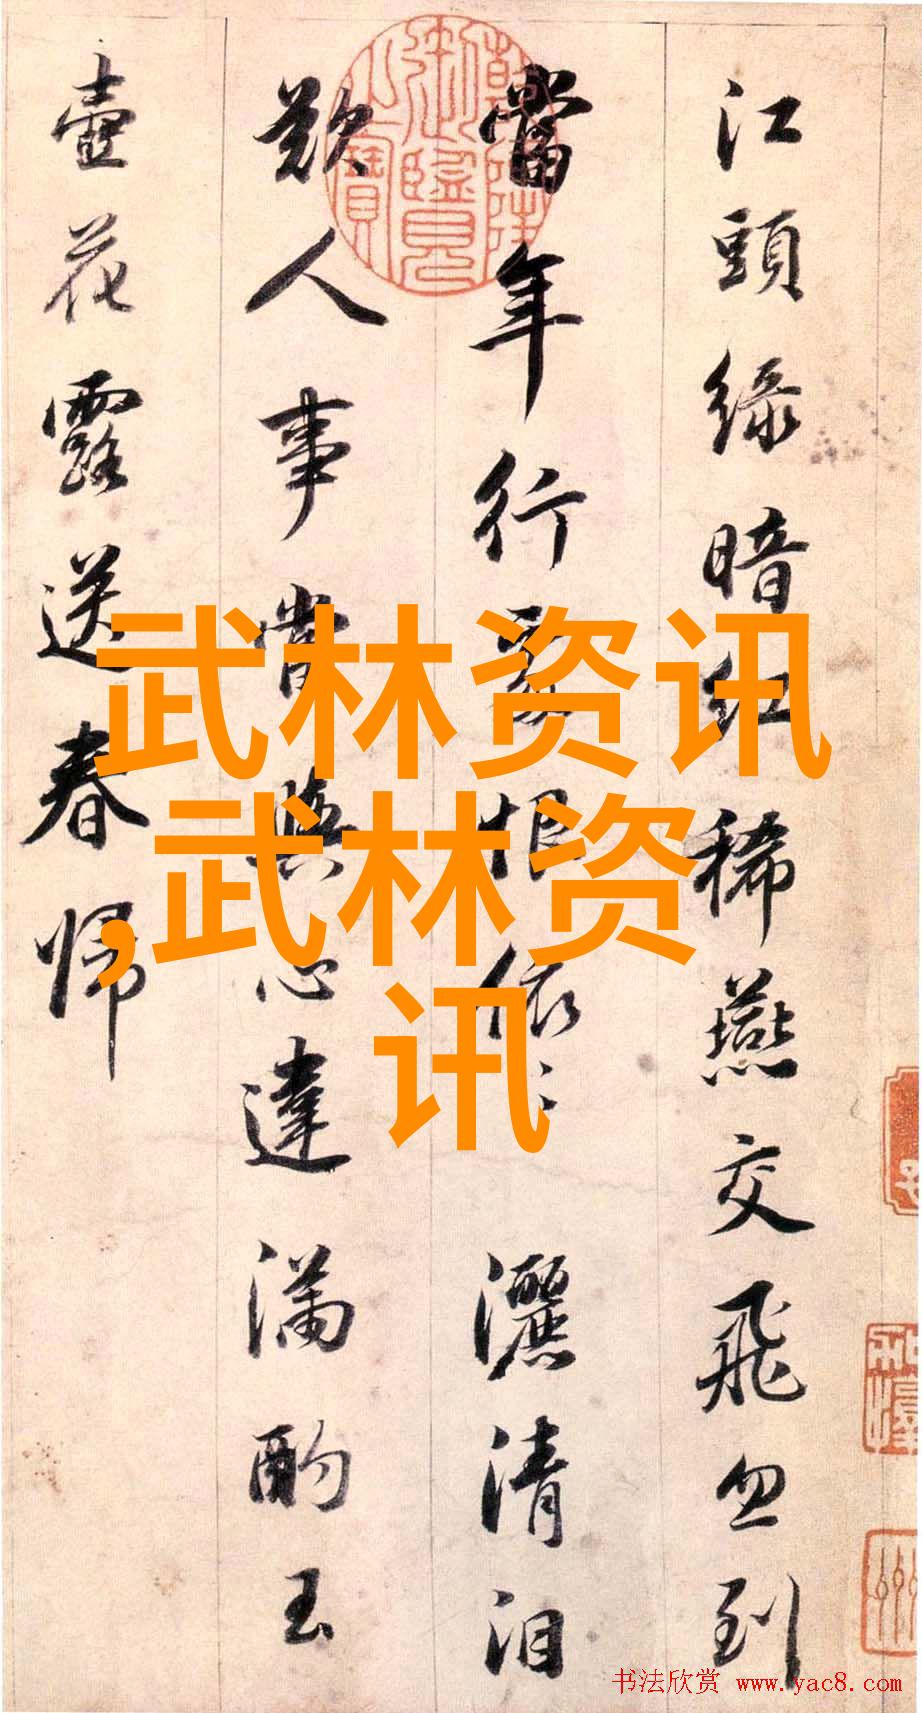 江頭綠暗紅稀燕交飛忽到
當年行處恨依〻灑清泪
歎人事常與心違滿酌玉
壺花露送春歸
乾隆御覽之寶
武林资讯
,武林资
讯
书法欣赏 www.yac8.com